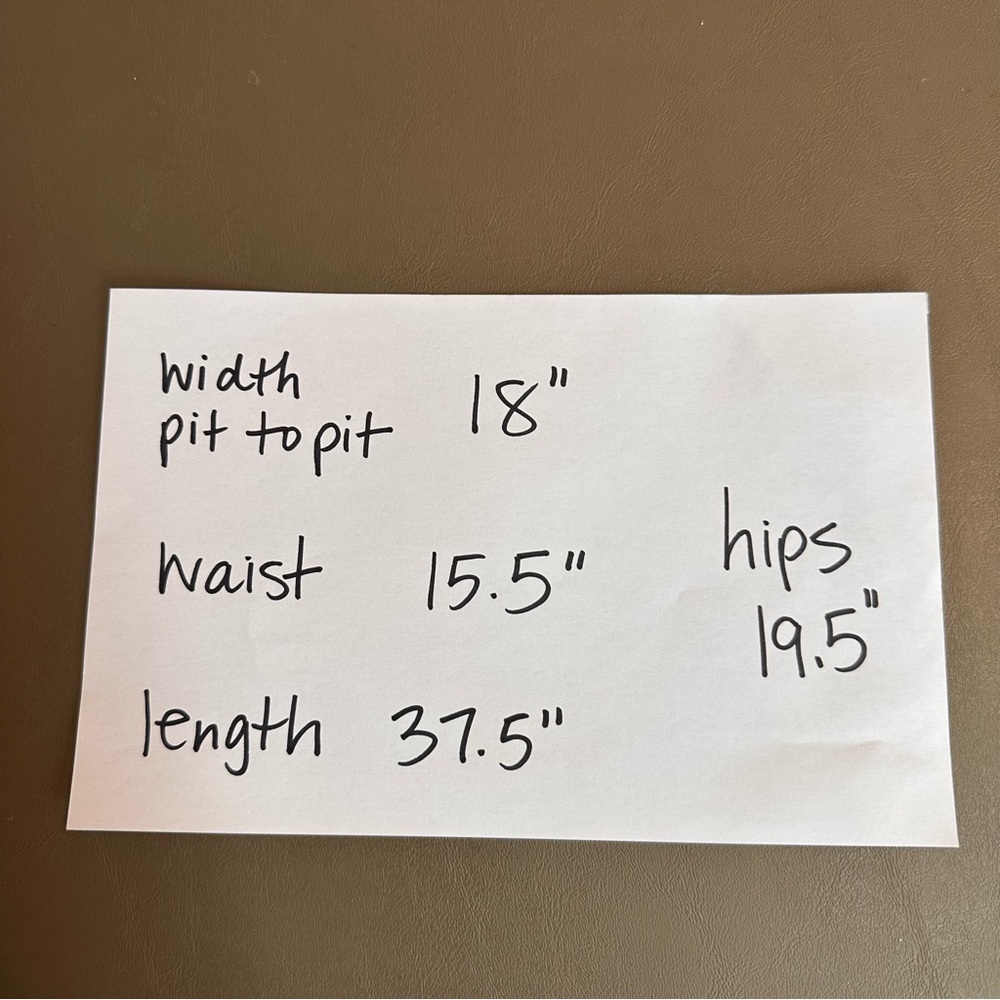 width
pit to pit 18"
waist 15.5"
hips
19.5"
length 37.5"